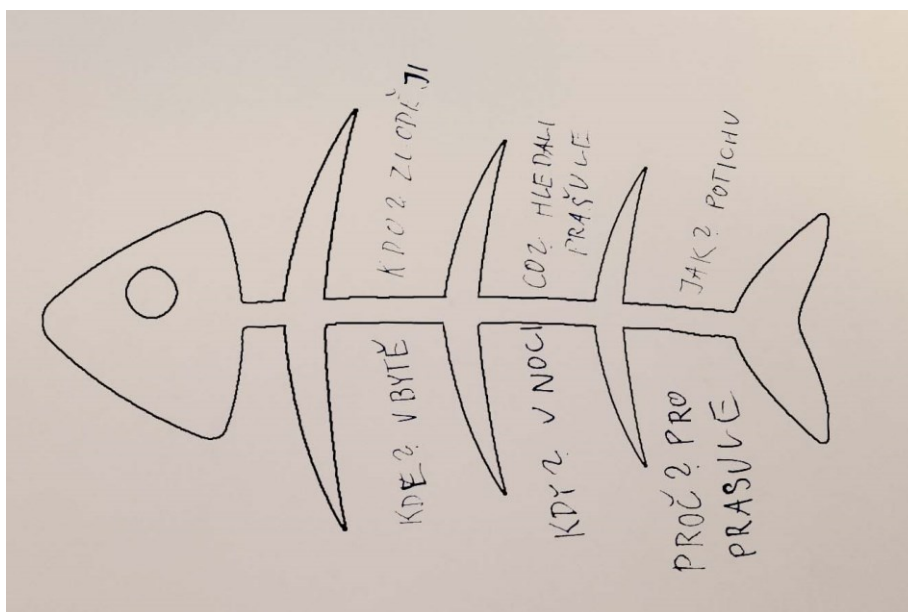 KDO? ZLODĚJI
CO? HLEDALI
PRAŠULE
JAK? POTICHU
KDE? V BYTĚ
KDY? V NOCI
PROČ? PRO
PRASULE